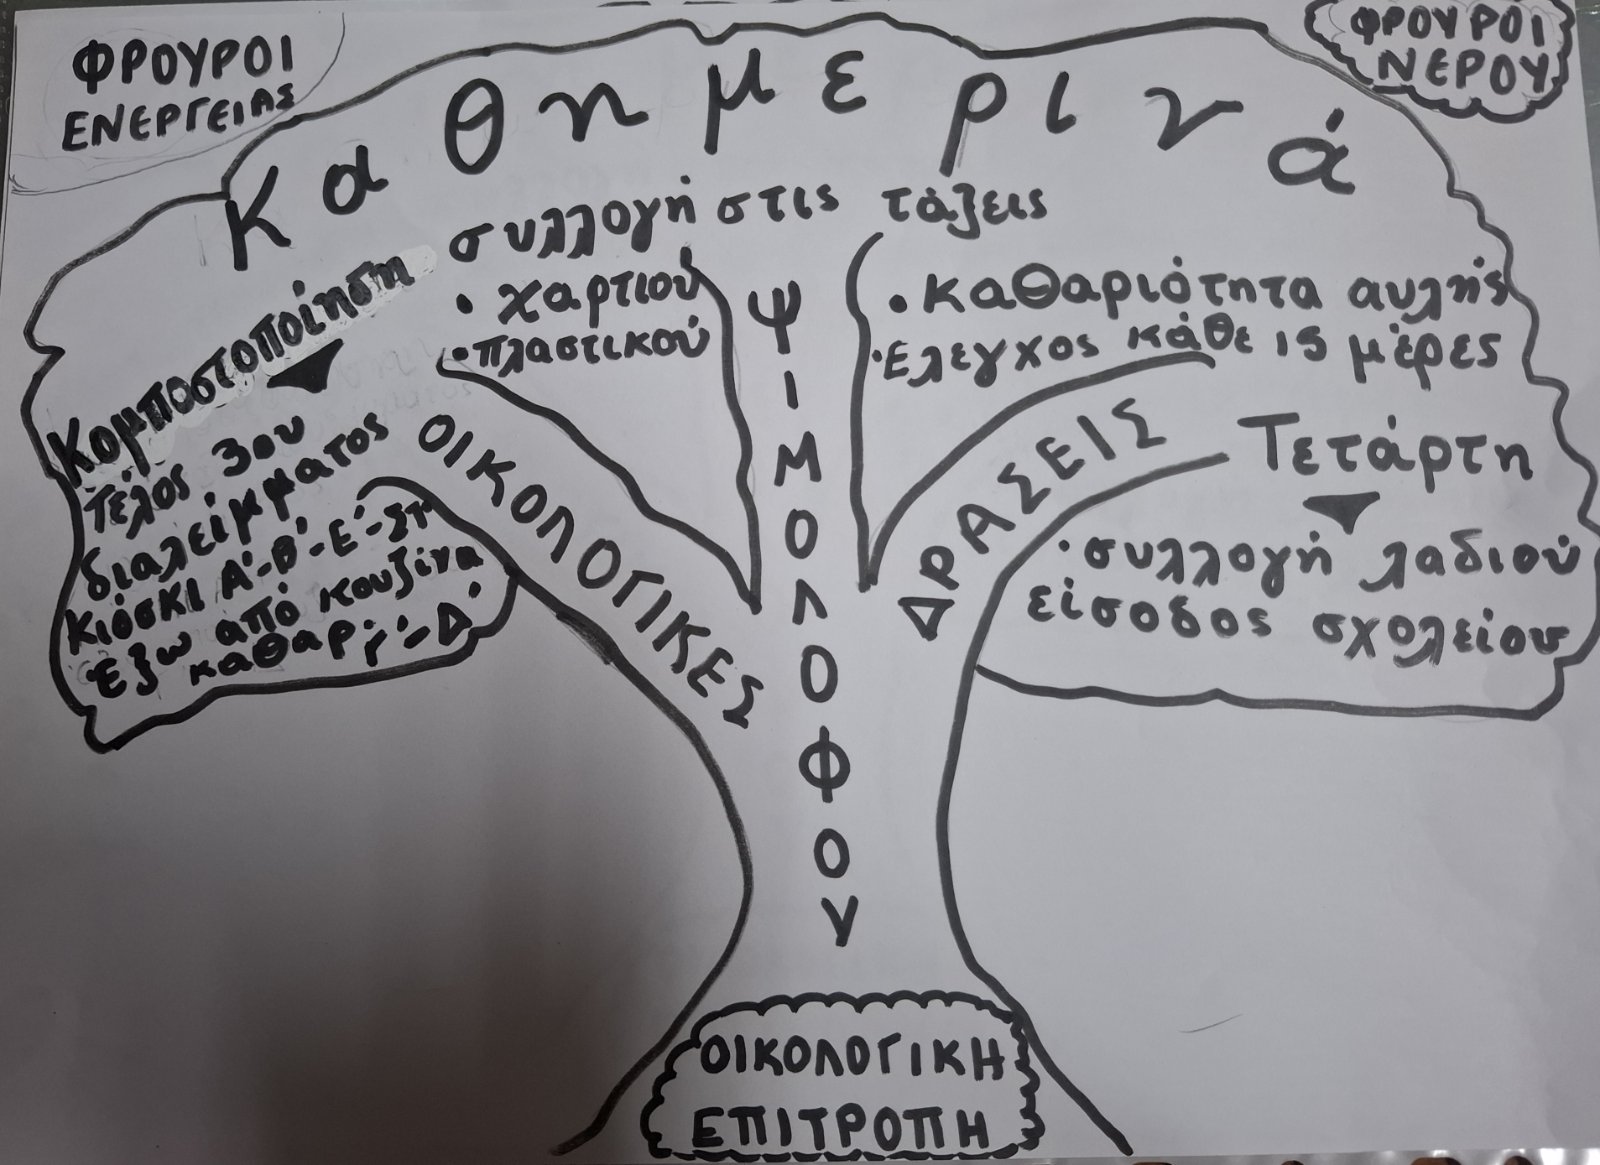 ΦΡΟΥΡΟΙ
ΕΝΕΡΓΕΙΑΣ
ΦΡΟΥΡΟΙ
ΝΕΡΟΥ
Καθημερινά
συλλογή στις τάξεις
• χαρτιού
• πλαστικού
• καθαριότητα αυλής
• Έλεγχος κάθε 15 μέρες
Κομποστοποίηση
Τέλος 3ου
διαλείμματος
Κιόσκι Α'-Β'-Ε'-Στ'
Έξω από κουζίνα
καθαρ. Γ'-Δ'
Τετάρτη
• συλλογή λαδιού
είσοδος σχολείου
ΟΙΚΟΛΟΓΙΚΕΣ
ΔΡΑΣΕΙΣ
ΨΙΜΟΛΟΦΟΥ
ΟΙΚΟΛΟΓΙΚΗ
ΕΠΙΤΡΟΠΗ